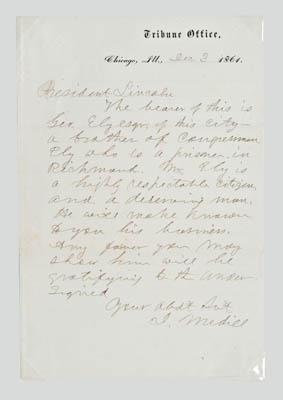 Tribune Office,
Chicago, Ill., Dec 3 1861.
President Lincoln
The bearer of this is
Geo. Ely esqr, of this city—
a brother of Congressman
Ely who is a prisoner in
Richmond. Mr. Ely is
a highly respectable citizen,
and a deserving man.
He will make known
to you his business.
Any favor you may
show him will be
gratifying to the under-
signed
Your obdt Svt
J. Medill